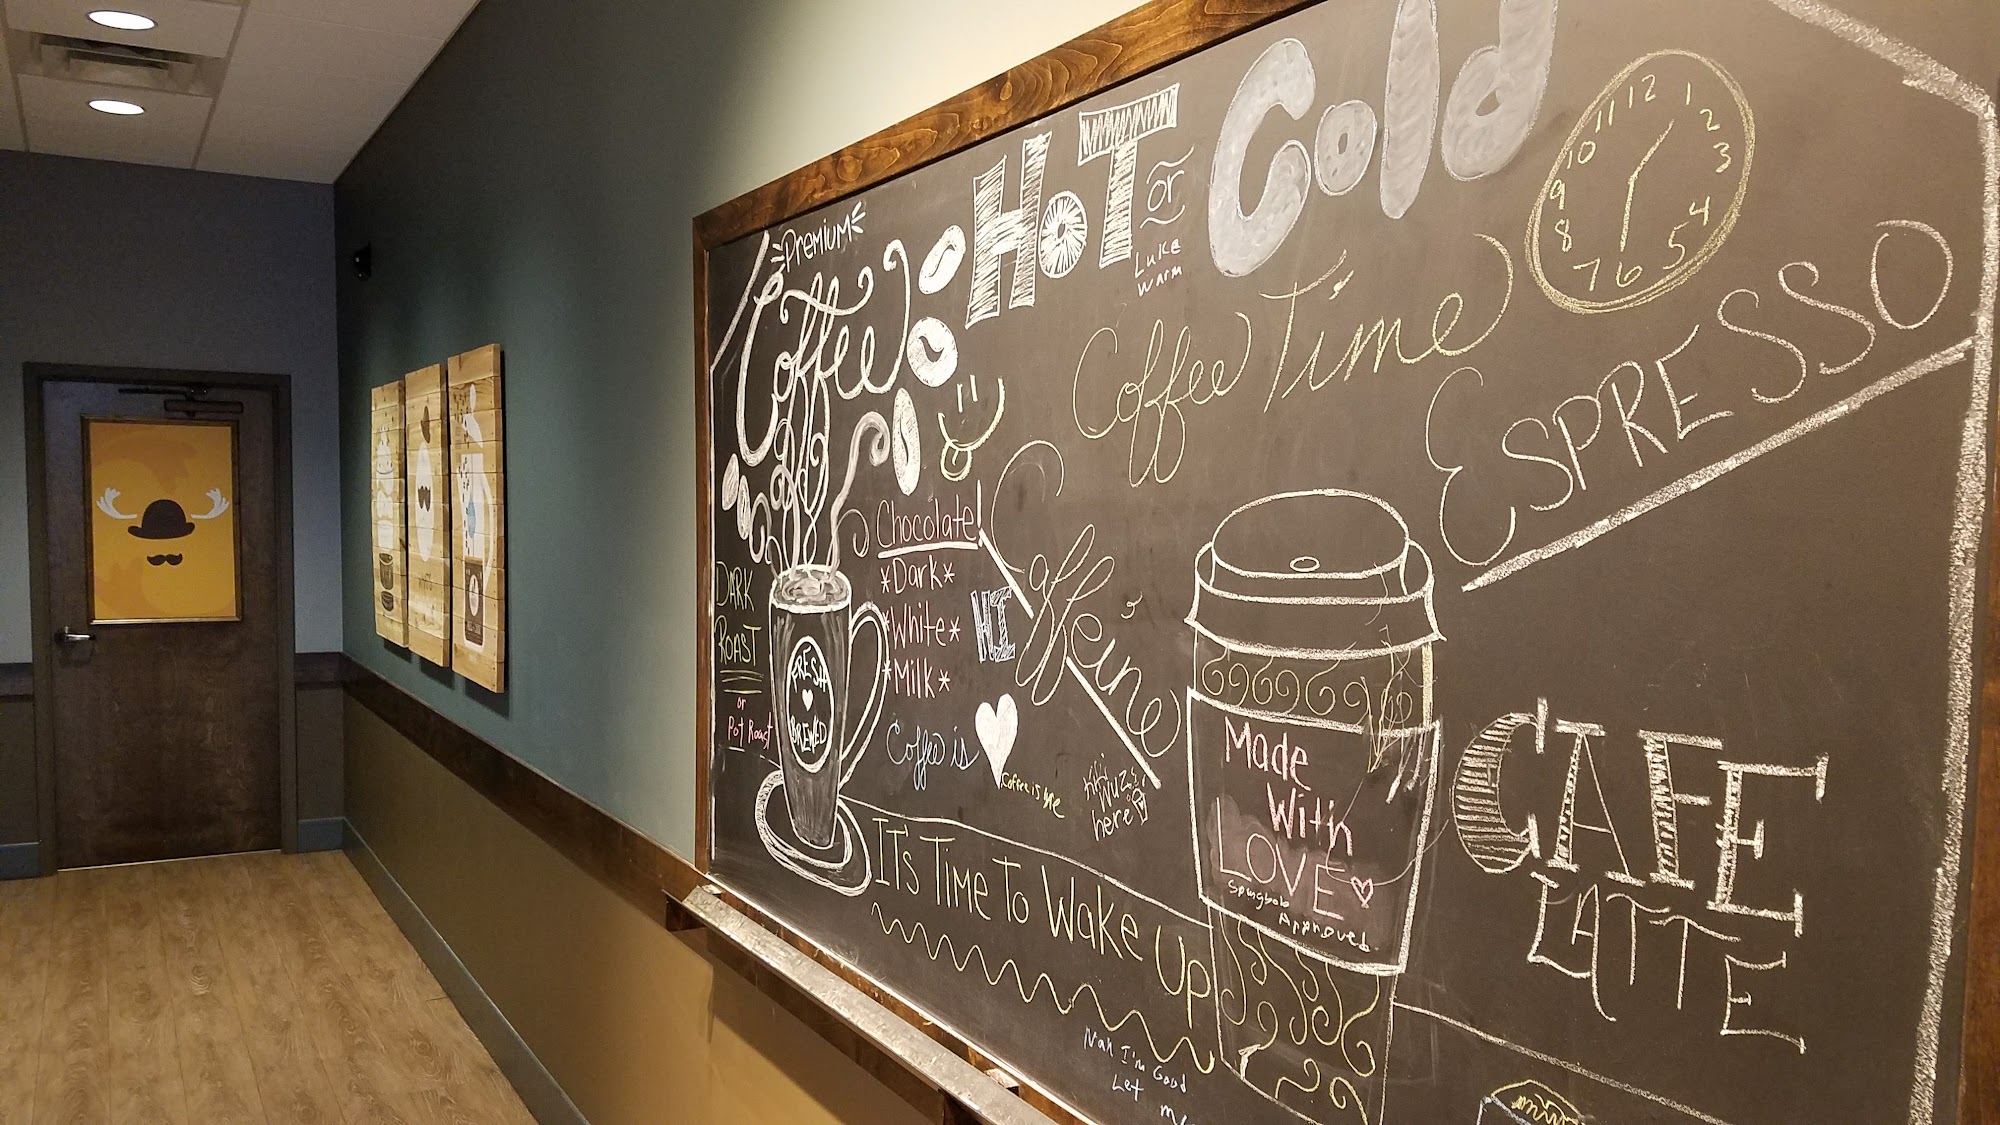 Premium
Coffee
HOT
or
Luke
warm
Cold
12
1
2
3
4
5
6
7
8
9
10
11
Coffee Time
ESPRESSO
Chocolate!
*Dark*
*White*
*Milk*
DARK
ROAST
or
Pot Roast
FRESH
BREWED
HI
Caffeine
Coffee is
Coffee is
wuz
here
Made
With
LOVE
Spongbob
Approved
CAFE
LATTE
IT'S Time To Wake Up
Nah I'm Good
Let